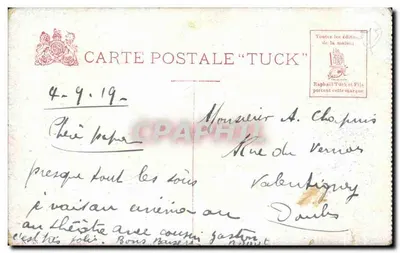 CARTE POSTALE "TUCK"
Toutes les éditions
de la maison
Raphaël Tuck et Fils
portent cette marque
4-9-19-
Chéri papa
presque tout les soirs
je vais au cinéma ou
au théâtre avec cousin gaston
c'est très jolie. Bons Baisers
Monsieur A. Chapuis
Rue du Vernois
Valentigney
Doubs